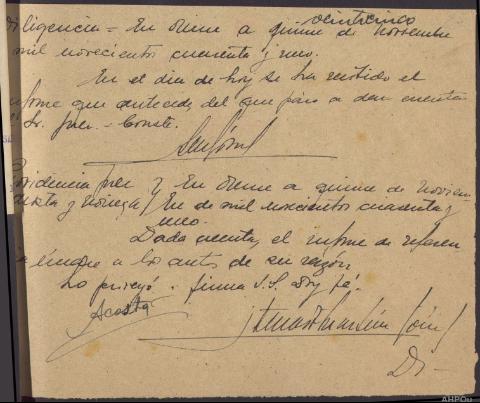 Diligencia = En Orense a quince de Noviembre
veinticinco
mil novecientos cuarenta y uno.
En el dia de hoy se ha recibido el
informe que antecede, del que paso a dar cuenta
Sr. Juez.- Conste.
Providencia Juez
En Orense a quince de Noviem
bre de mil novecientos cuarenta y
uno.
Dada cuenta, el informe de referen
cia únase a los autos de su razón,
Lo proveyó. firma S.S. doy fé.
Acosta
Di-
AHPOu